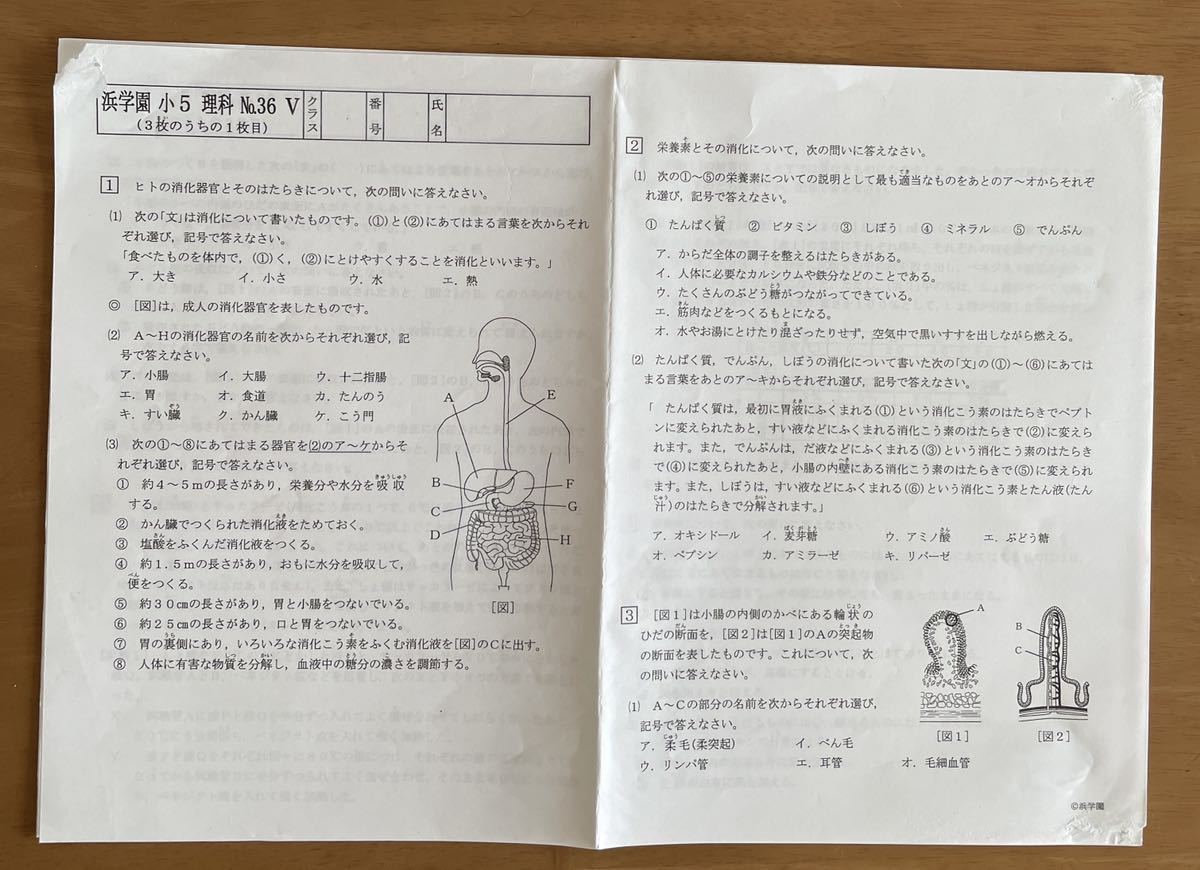 浜学園 小5 理科 No.36 V
(3枚のうちの1枚目)
クラス
番号
氏名
1 ヒトの消化器官とそのはたらきについて,次の問いに答えなさい。
(1) 次の「文」は消化について書いたものです。(①)と(②)にあてはまる言葉を次からそれ
ぞれ選び,記号で答えなさい。
「食べたものを体内で,(①)く,(②)にとけやすくすることを消化といいます。」
ア.大き イ.小さ ウ.水 エ.熱
◎ [図]は,成人の消化器官を表したものです。
(2) A~Hの消化器官の名前を次からそれぞれ選び,記
号で答えなさい。
ア.小腸 イ.大腸 ウ.十二指腸
エ.胃 オ.食道 カ.たんのう
キ.すい臓 ク.かん臓 ケ.こう門
(3) 次の①~⑧にあてはまる器官を(2)のア~ケからそ
れぞれ選び,記号で答えなさい。
① 約4~5mの長さがあり,栄養分や水分を吸収
する。
② かん臓でつくられた消化液をためておく。
③ 塩酸をふくんだ消化液をつくる。
④ 約1.5mの長さがあり,おもに水分を吸収して,
便をつくる。
⑤ 約30cmの長さがあり,胃と小腸をつないでいる。
⑥ 約25cmの長さがあり,口と胃をつないでいる。
⑦ 胃の裏側にあり,いろいろな消化こう素をふくむ消化液を[図]のCに出す。
⑧ 人体に有害な物質を分解し,血液中の糖分の濃さを調節する。
A
E
B
F
C
G
D
H
[図]
2 栄養素とその消化について,次の問いに答えなさい。
(1) 次の①~⑤の栄養素についての説明として最も適当なものをあとのア~オからそれぞ
れ選び,記号で答えなさい。
① たんぱく質 ② ビタミン ③ しぼう ④ ミネラル ⑤ でんぷん
ア.からだ全体の調子を整えるはたらきがある。
イ.人体に必要なカルシウムや鉄分などのことである。
ウ.たくさんのぶどう糖がつながってできている。
エ.筋肉などをつくるもとになる。
オ.水やお湯にとけたり混ざったりせず,空気中で黒いすすを出しながら燃える。
(2) たんぱく質,でんぷん,しぼうの消化について書いた次の「文」の(①)~(⑥)にあては
まる言葉をあとのア~キからそれぞれ選び,記号で答えなさい。
「 たんぱく質は,最初に胃液にふくまれる(①)という消化こう素のはたらきでペプト
ンに変えられたあと,すい液などにふくまれる消化こう素のはたらきで(②)に変えら
れます。また,でんぷんは,だ液などにふくまれる(③)という消化こう素のはたらき
で(④)に変えられたあと,小腸の内壁にある消化こう素のはたらきで(⑤)に変えられま
す。また,しぼうは,すい液などにふくまれる(⑥)という消化こう素とたん液(たん
汁)のはたらきで分解されます。」
ア.オキシドール イ.麦芽糖 ウ.アミノ酸 エ.ぶどう糖
オ.ペプシン カ.アミラーゼ キ.リパーゼ
3 [図1]は小腸の内側のかべにある輪状の
ひだの断面を,[図2]は[図1]のAの突起物
の断面を表したものです。これについて,次
の問いに答えなさい。
(1) A~Cの部分の名前を次からそれぞれ選び,
記号で答えなさい。
ア.柔毛(柔突起) イ.べん毛
ウ.リンパ管 エ.耳管 オ.毛細血管
A
B
C
[図1]
[図2]
©浜学園